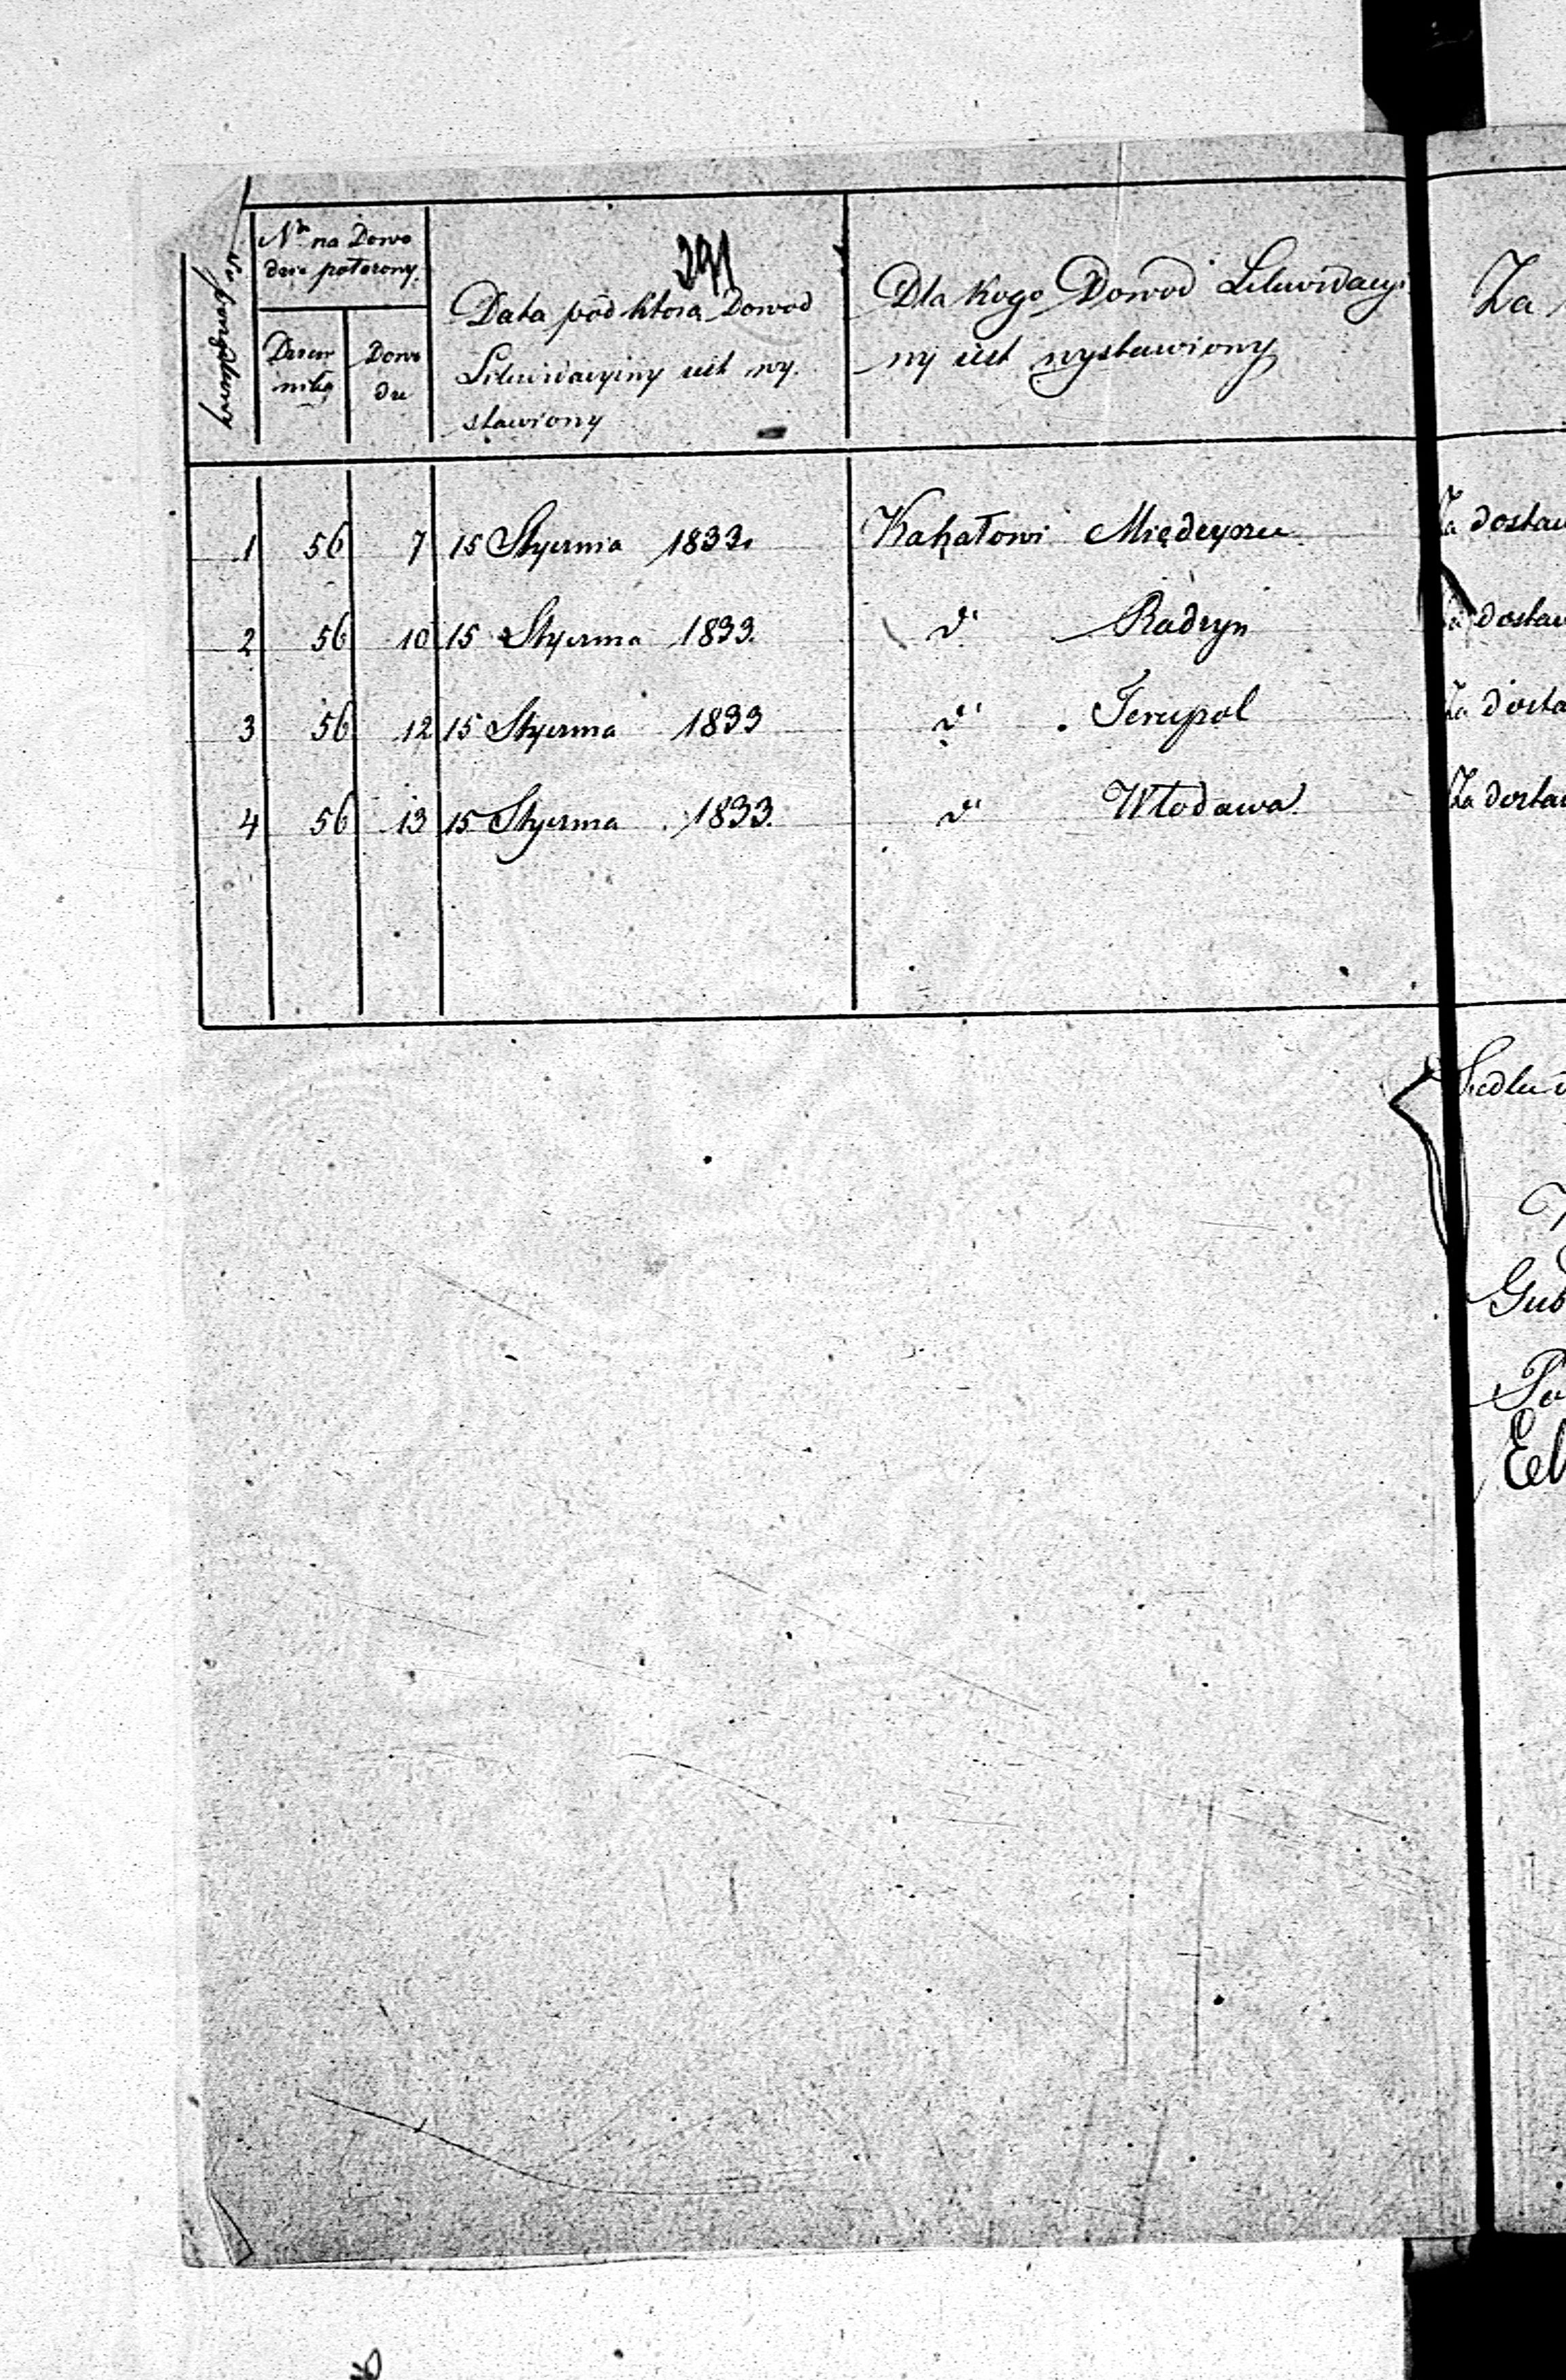 291
No porządkowy
Nr na Dowo
dzie położony.
Dzien
nika
Dowo
du
Data pod którą Dowod
Likwidacyiny iest wy.
stawiony
Dla kogo Dowod Likwidacyi
ny iest wystawiony
Za
1 56 7 15 Stycznia 1833. Kahałowi Międzyrzec Za dostaw
2 56 10 15 Stycznia 1833. d° Radzyn Za dostaw
3 56 12 15 Stycznia 1833 d° Terespol Za dosta
4 56 13 15 Stycznia 1833. d° Włodawa Za dostaw
Siedlce d
Gub